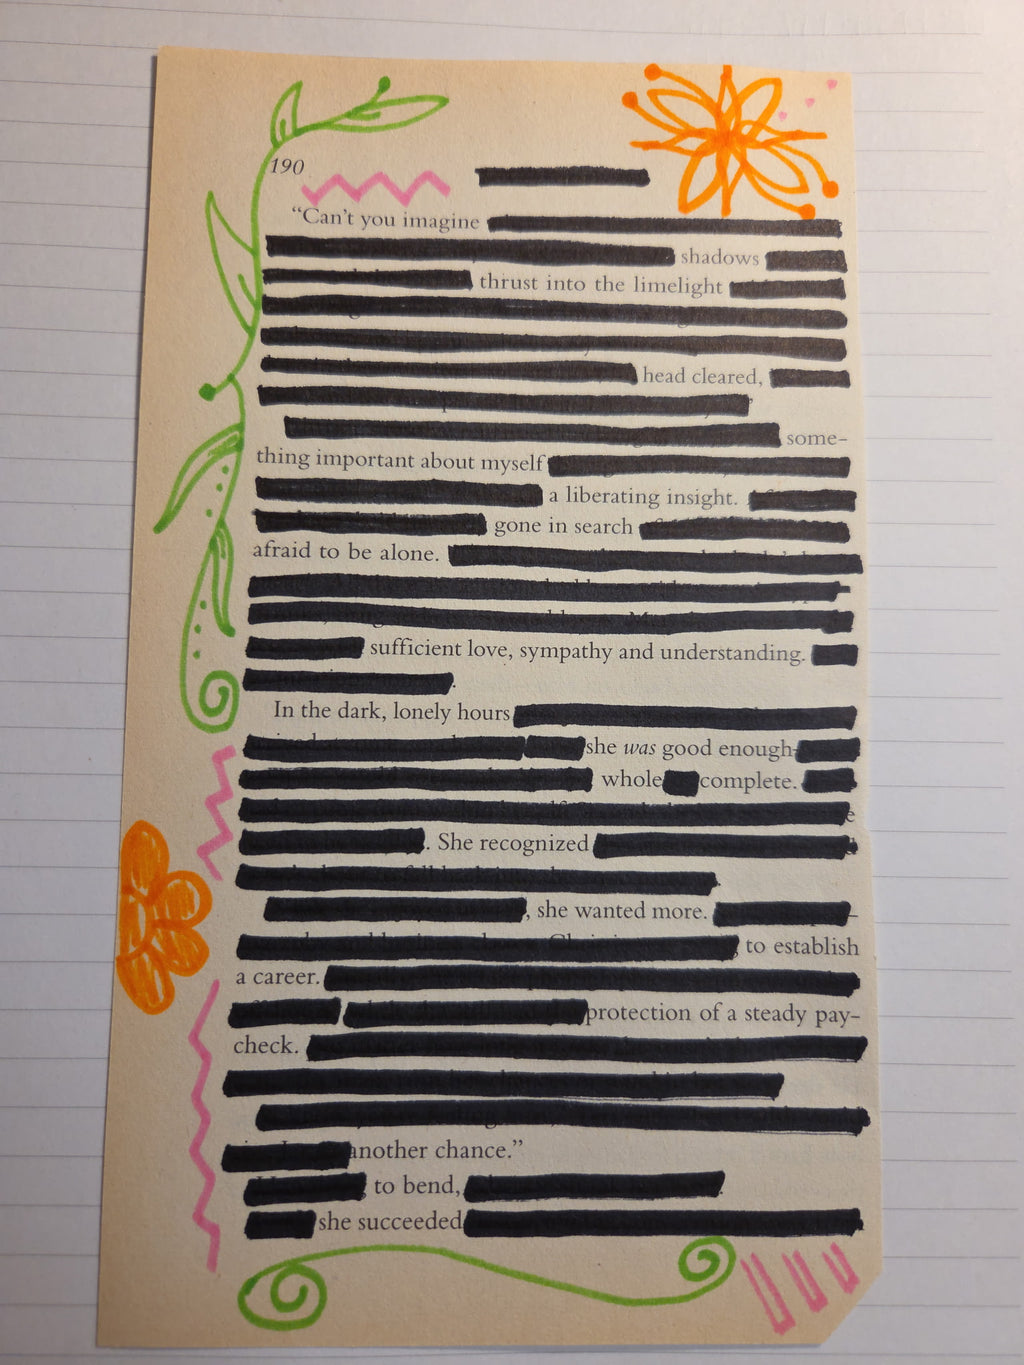 190
“Can’t you imagine
shadows
thrust into the limelight
head cleared,
some-
thing important about myself
a liberating insight.
gone in search
afraid to be alone.
sufficient love, sympathy and understanding.
.
In the dark, lonely hours
she was good enough
whole complete.
. She recognized
.
, she wanted more.
to establish
a career.
protection of a steady pay-
check.
another chance.”
to bend,
she succeeded